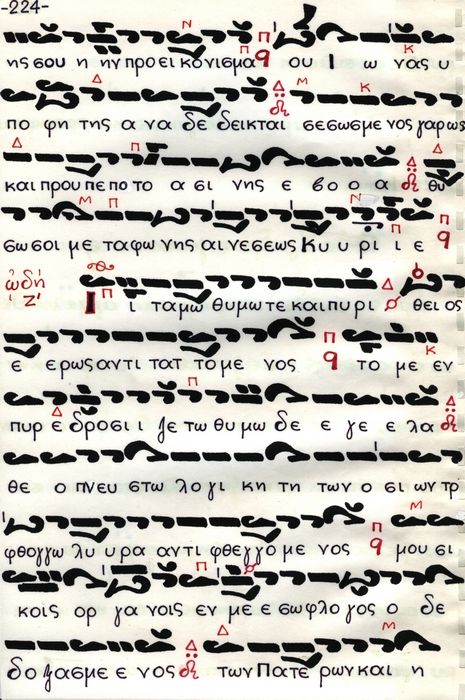 -224-
ης σου η ην προ ει κο νι σμα ου Ι ω νας υ
πο φη της α να δε δει κται σε σω σμε νος γαρ ως
και πρου πε πο το α σι νης ε βο ο α θυ
σω σοι με τα φω νης αι νε σε ως Κυ υ ρι ι ε
ὠδή Ι ι τα μω θυ μω τε και πυ ρι θει ος
ζ'
ε ε ρως αν τι τατ το με νος το με εν
πυρ ε δρο σι ι ζε τω θυ μω δε ε γε ε λα
θε ο πνευ στω λο γι κη τη των ο σι ων τρ
φθογ γω λυ υ ρα αν τι φθεγ γο με νος μου σι
κοις ορ γα νοις εν με ε σω φλο γος ο δε
δο ξασ με ε νος των Πα τε ρων και η